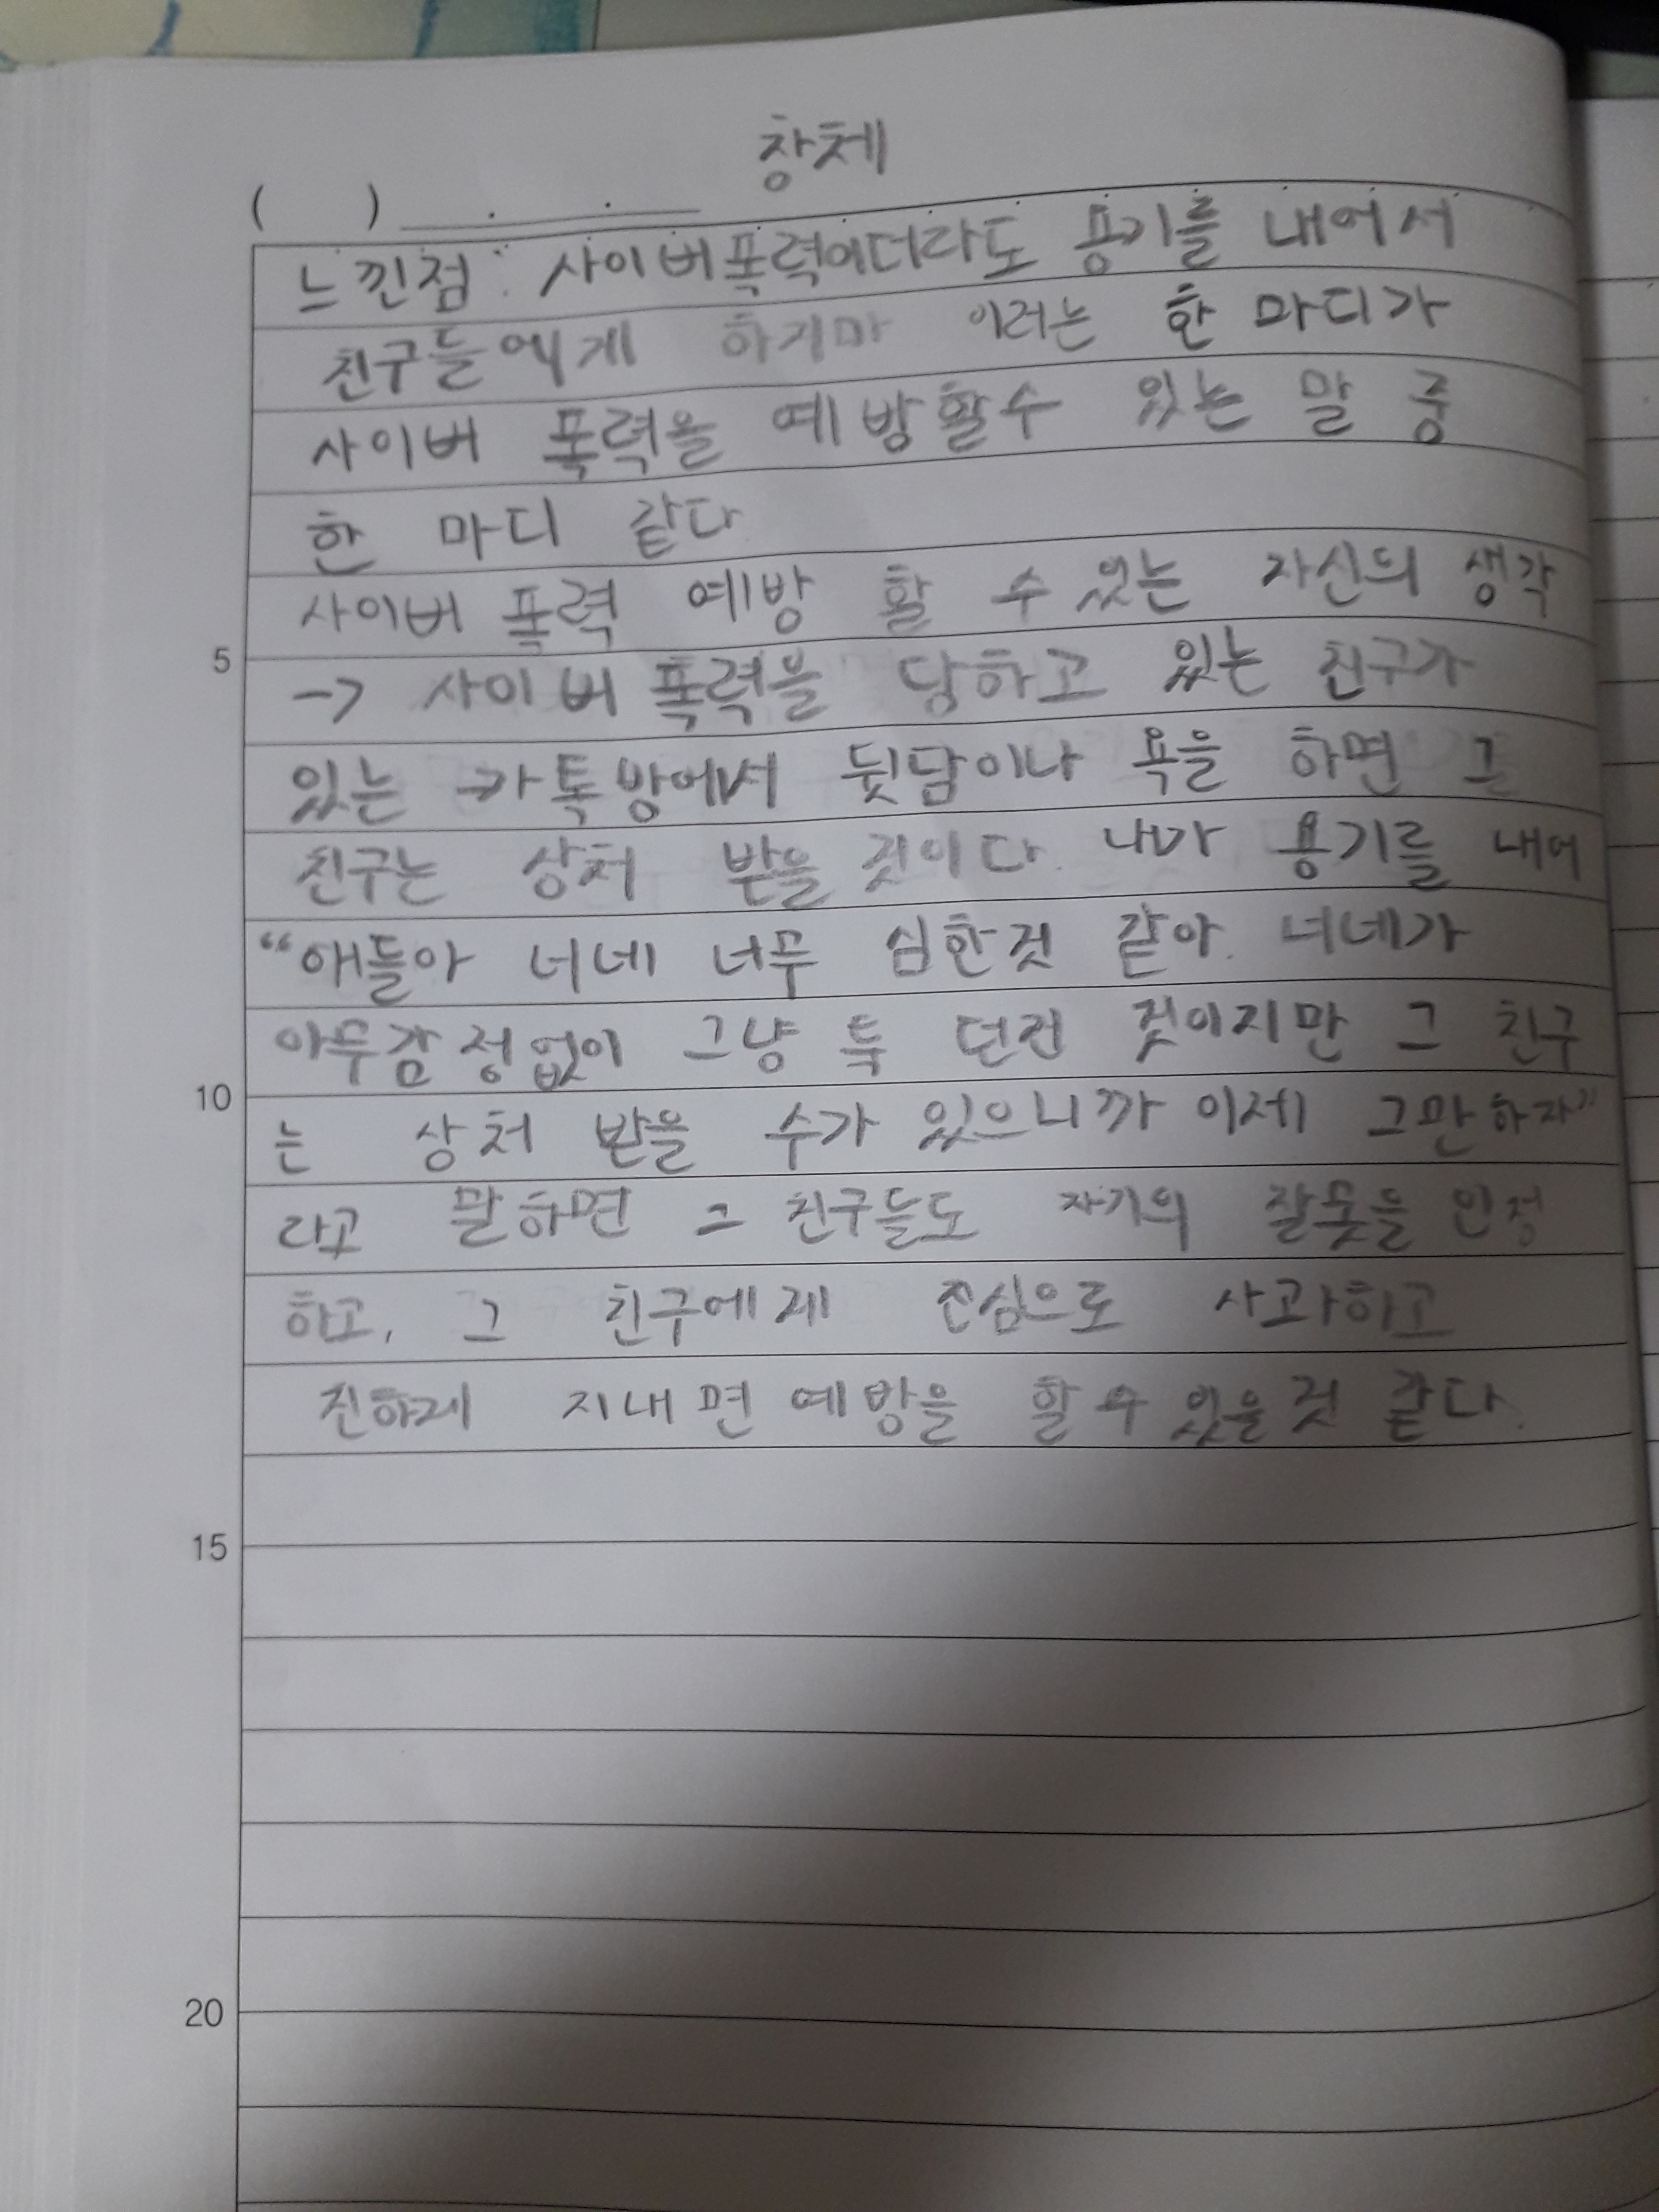 창체
( ) . .
느낀점 : 사이버폭력이더라도 용기를 내어서
친구들에게 하지마 이러는 한 마디가
사이버 폭력을 예방할수 있는 말 중
한 마디 같다
사이버 폭력 예방 할 수 있는 자신의 생각
5
-> 사이버 폭력을 당하고 있는 친구가
있는 카톡방에서 뒷담이나 욕을 하면 그
친구는 상처 받을 것이다. 내가 용기를 내어
“애들아 너네 너무 심한것 같아. 너네가
아무감정없이 그냥 툭 던진 것이지만 그 친구
10
는 상처 받을 수가 있으니까 이제 그만하자”
라고 말하면 그 친구들도 자기의 잘못을 인정
하고, 그 친구에게 진심으로 사과하고
친하게 지내면 예방을 할 수 있을것 같다.
15
20